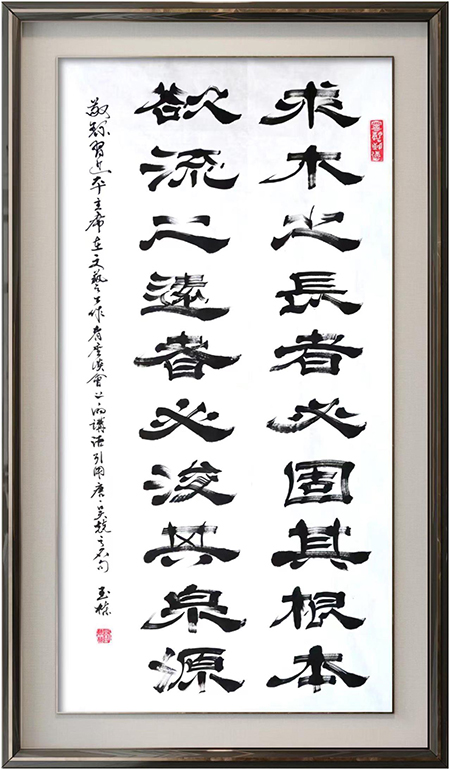 求木之長者必固其根本
欲流之遠者必浚其泉源
敬録習近平主席在文藝工作者座談會上的講話引用唐·吴兢之名句